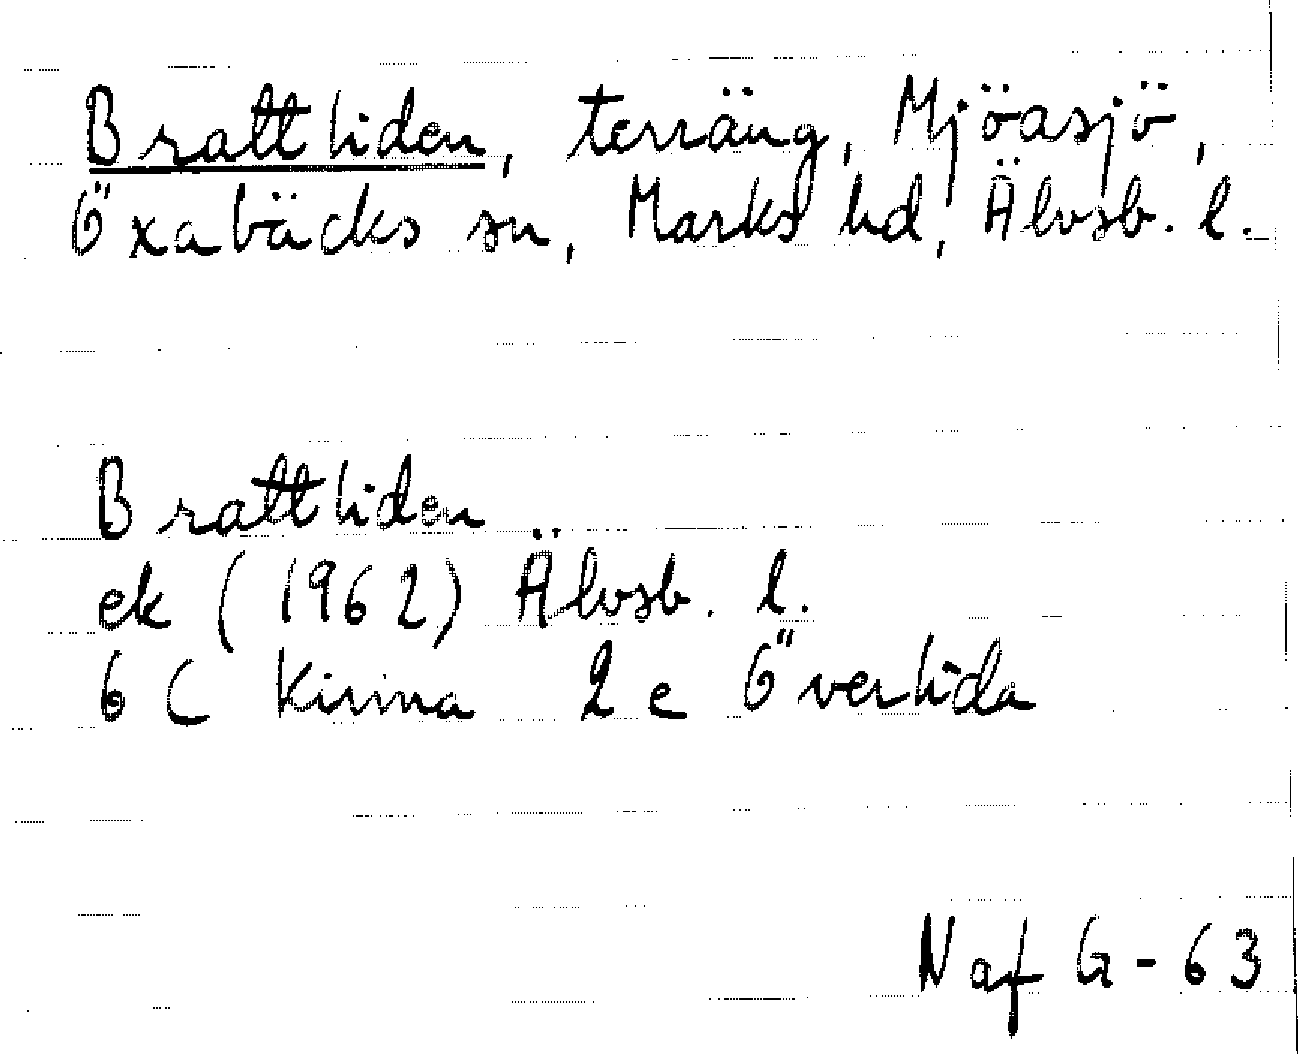 Brattliden, terräng, Mjöasjö,
Öxabäcks sn, Marks hd, Älvsb. l.
Brattliden
ek (1962) Älvsb. l.
6 C Kinna 2 e Överlida
Naf G - 63